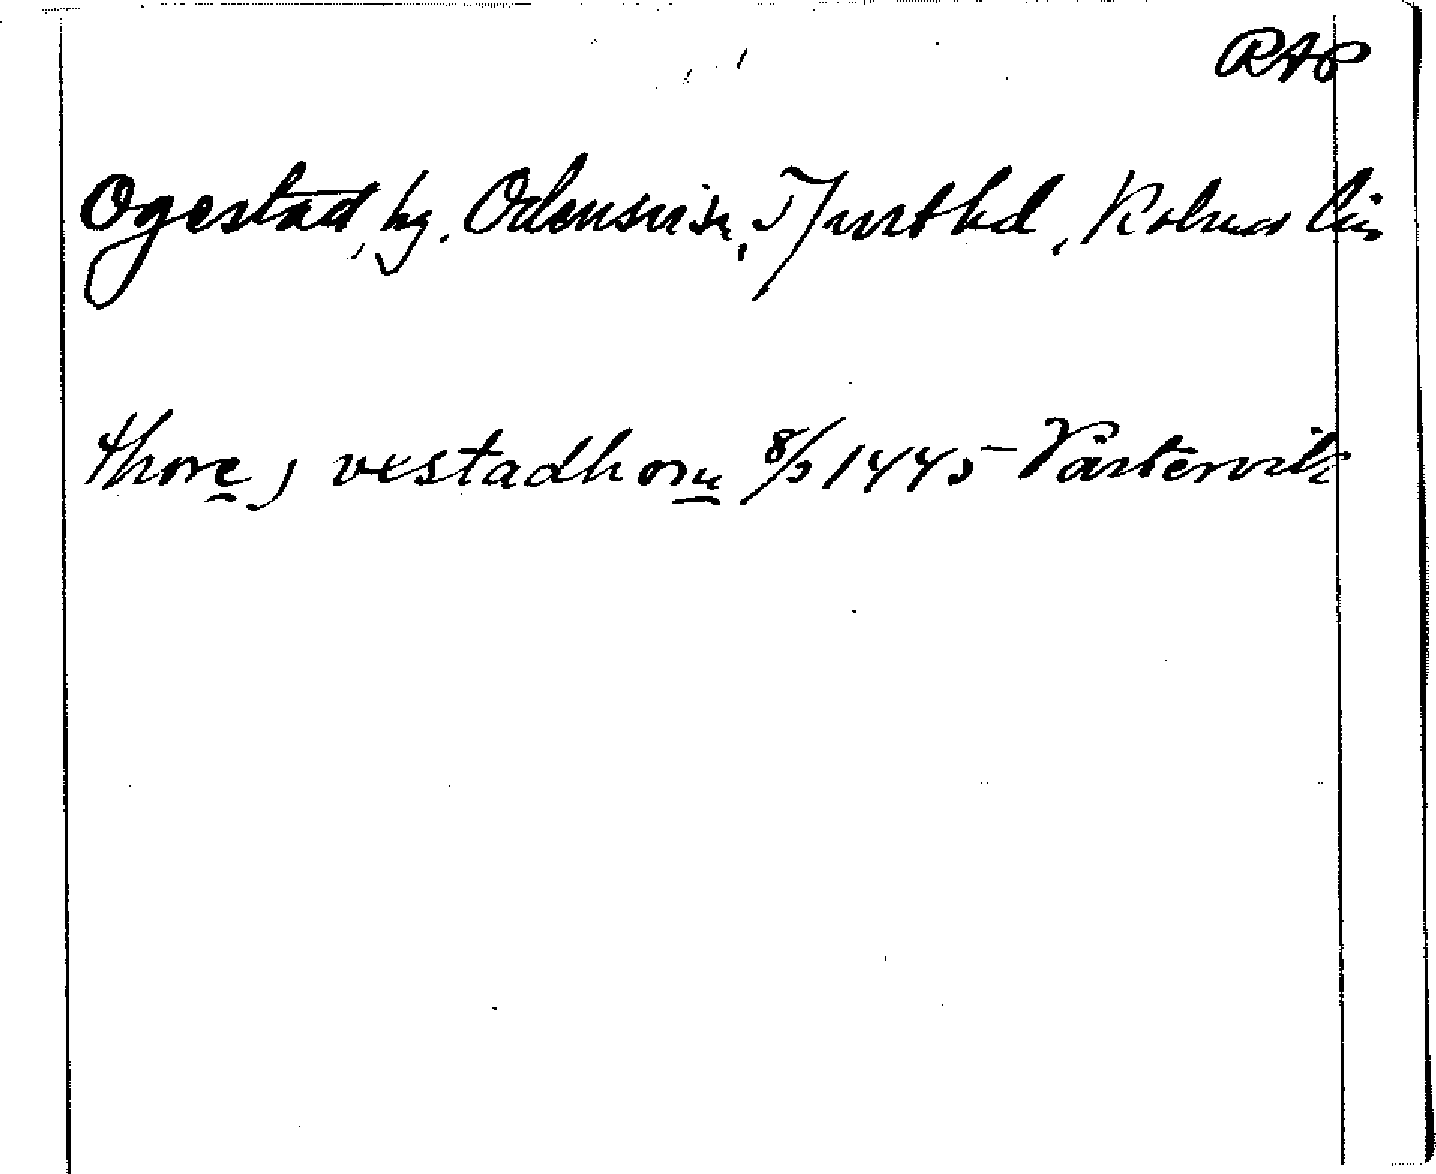 RAP
Ogestad, by. Odensvi sn, Tjust hd, Kalmar län
thore j vestadhom 8/5 1445 Västervik